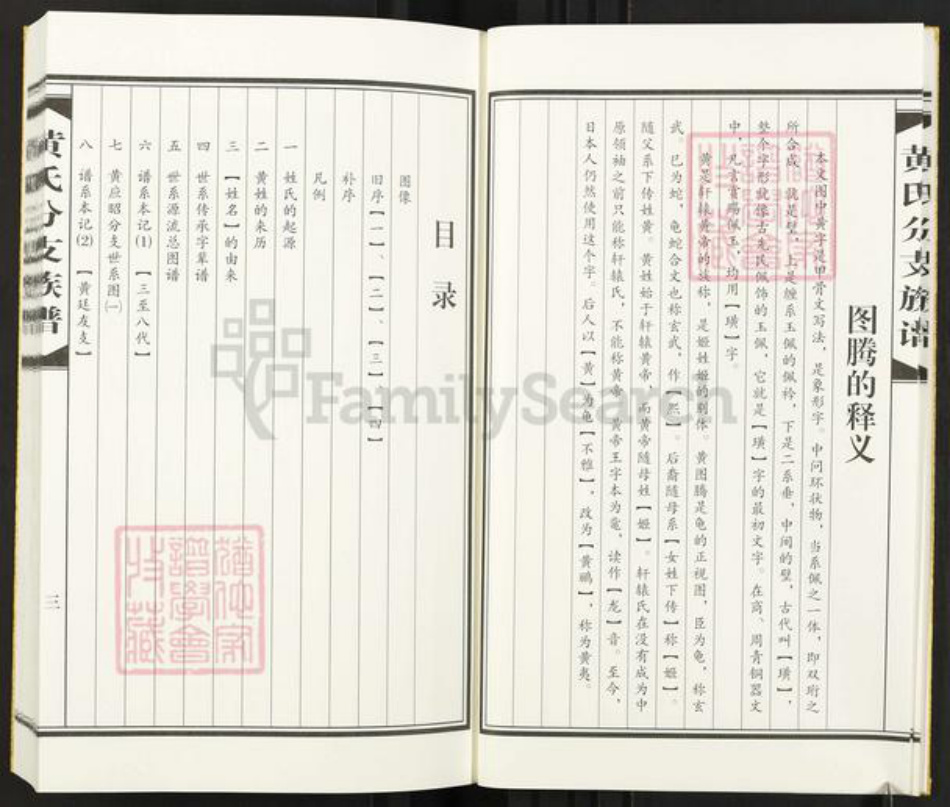 黄氏分支族谱
图腾的释义
本文图中黄字说甲骨文写法，是象形字。中问环状物，当系佩之一体，即双珩之
所合成，就是璧，上是缠系玉佩的佩衿，下是二系垂，中间的璧，古代叫【璜】，
整个字形就像古先民佩饰的玉佩，它就是【璜】字的最初文字。在商、周青铜器文
中，凡言赏赐佩玉，均用【璜】字。
黄是轩辕黄帝的族称，是姬姓姬的别体。黄图腾是龟的正视图，臣为龟，称玄
武。巳为蛇，龟蛇合文也称玄武，作【熙】。后裔随母系【女姓下传】称【姬】。
随父系下传姓黄。黄姓始于轩辕黄帝，而黄帝随母姓【姬】。轩辕氏在没有成为中
原领袖之前只能称轩辕氏，不能称黄帝，黄帝王字本为鼋，读作【龙】音。至今，
日本人仍然使用这个字。后人以【黄】为龟【不雅】，改为【黄鹏】，称为黄夷。
目录
图像
旧序【一】、【二】、【三】、【四】
补序
凡例
一 姓氏的起源
二 黄姓的来历
三 【姓名】的由来
四 世系传承字辈谱
五 世系源流总图谱
六 谱系本记(1) 【三至八代】
七 黄应昭分支世系图(一)
八 谱系本记(2) 【黄廷友支】
黄氏分支族谱
三
FamilySearch